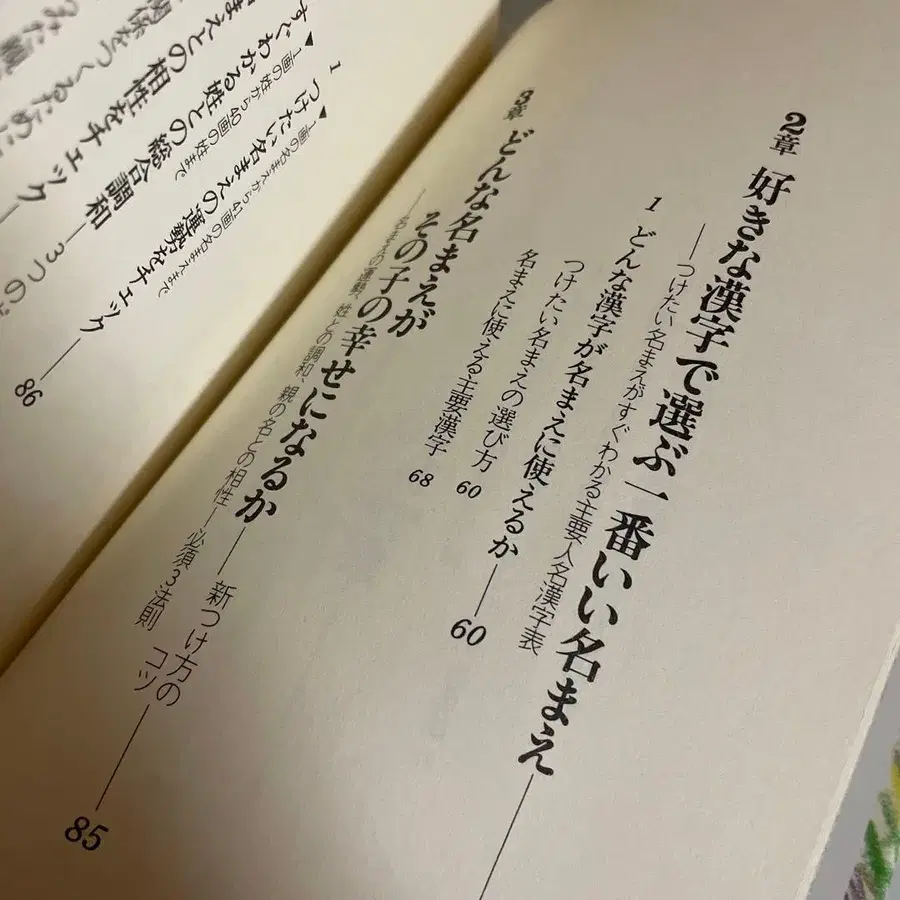 2章 好きな漢字で選ぶ一番いい名まえ
―つけたい名まえがすぐわかる主要人名漢字表
1 どんな漢字が名まえに使えるか―60
つけたい名まえの選び方 60
名まえに使える主要漢字 68
3章 どんな名まえが
その子の幸せになるか―新つけ方のコツ―85
―名まえの運勢、姓との調和、親の名との相性―必須3法則
1 つけたい名まえの運勢をチェック―86
▼1画の名まえから41画の名まえまで
すぐわかる姓との総合調和―3つの
▼1画の姓から40画の姓まで
まえとの相性をチェック―
関係をつくるために